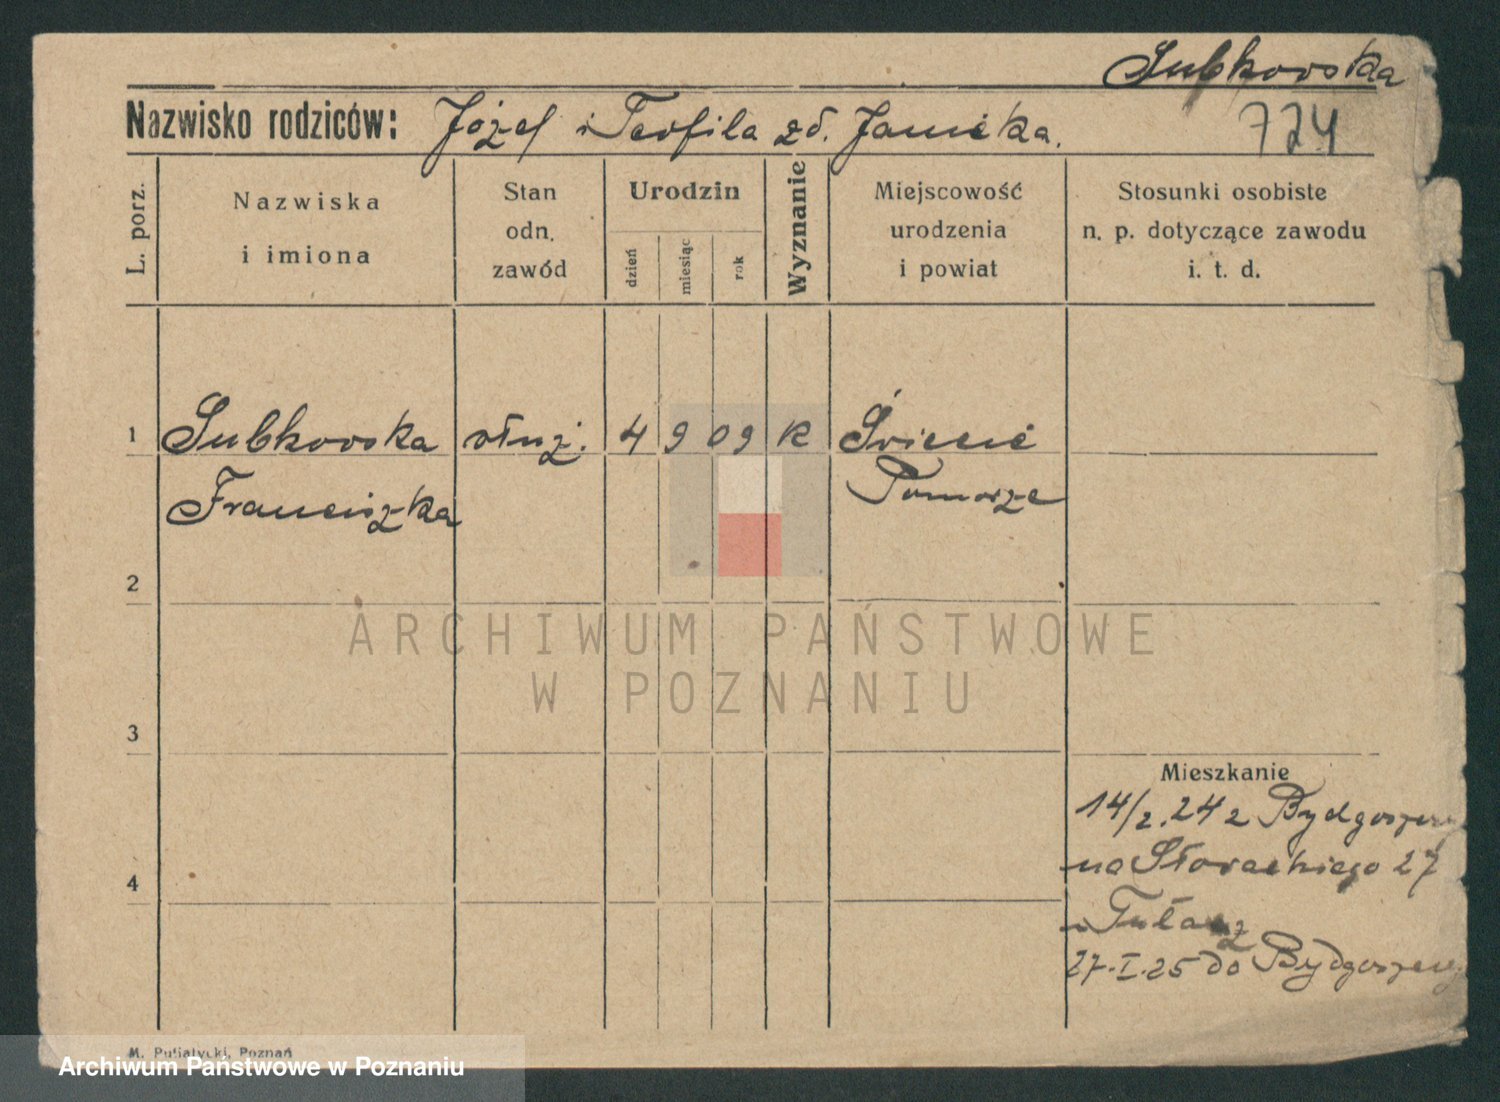 Subkowska
Nazwisko rodziców: Józef i Teofila zd. Janicka.
724
L. porz.
Nazwiska
i imiona
Stan
odn.
zawód
Urodzin
dzień
miesiąc
rok
Wyznanie
Miejscowość
urodzenia
i powiat
Stosunki osobiste
n. p. dotyczące zawodu
i. t. d.
1 Subkowska służ. 4 9 09 K Świecie
Franciszka Pomorze
2
ARCHIWUM PAŃSTWOWE
W POZNANIU
3
Mieszkanie
14/2.24 z Bydgoszczy
na Słowackiego 27
4
27.I.25 do Bydgoszczy
M. Putiatycki, Poznań
Archiwum Państwowe w Poznaniu